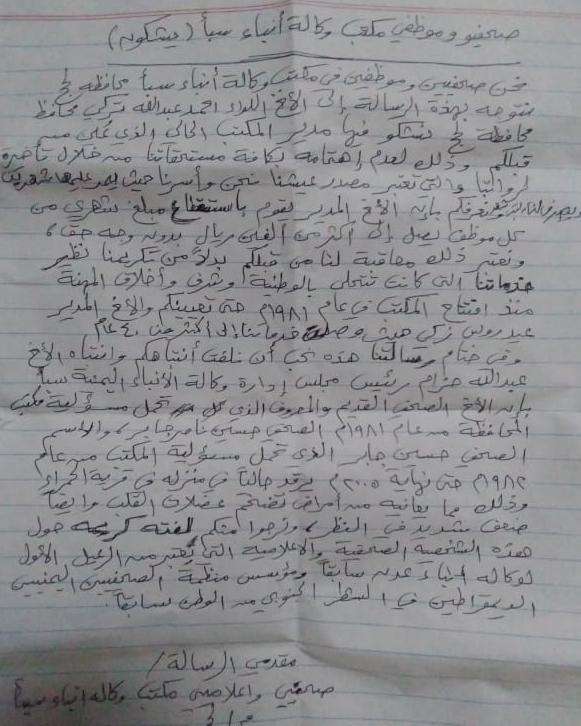 صحفيو وموظفي مكتب وكالة أنباء سبأ (يشكون)
نحن صحفيين وموظفين في مكتب وكالة أنباء سبأ محافظة لحج
نتوجه بهذه الرسالة إلى الأخ اللواء احمد عبدالله تركي محافظ
محافظة لحج نشكو فيها مدير المكتب الحالي الذي عُين من
قبلكم وذلك لعدم إهتمامه بكافة مستحقاتنا من خلال تأخيره
لرواتبنا والتي تعتبر مصدر عيشنا نحن وأسرنا حيث يمر عليها شهرين
ونعرفكم بأن الأخ المدير يقوم باستقطاع مبلغ شهري من
كل موظف يصل إلى أكثر من ألفين ريال بدون وجه حق،
ونعتبر ذلك معاقبة لنا من قبلكم بدلاً من تكريمنا نظير
خدماتنا التي كانت تتحلى بالوطنية وشرف وأخلاق المهنة
منذ افتتاح المكتب في عام ١٩٨١م حتى تعيينكم والأخ المدير
عيدروس زكي حيث وصلت خدماتنا إلى أكثر من ٤٠ عام
وفي ختام رسالتنا هذه نحب أن نلفت أنتباهكم وانتباه الأخ
عبدالله حزام رئيس مجلس إدارة وكالة الأنباء اليمنية سبأ
بأن الأخ الصحفي القديم والمعروف الذي تحمل مسؤلية مكتب
المحافظة من عام ١٩٨١م الصحفي حسين ناصر جابر، والاسم
الصحفي حسين جابر الذي تحمل مسؤلية المكتب من عام
١٩٨٢م حتى نهاية ٢٠٠٥م يرقد حالياً في منزله في قرية الحمراء
وذلك مما يعانيه من أمراض تضخم عضلات القلب وايضاً
ضعف شديد في النظر، ونرجوا منكم لفته كريمه حول
هذه الشخصية الصحفية والاعلامية التي تعتبر من الرعيل الاول
لوكاله انباء عدن سابقاً ومؤسس منظمة الصحفيين اليمنيين
الديمقراطيين في الشطر الجنوبي من الوطن سابقاً.
مقدمي الرسالة/
صحفيي واعلاميي مكتب وكاله انباء سبأ
م/لحج